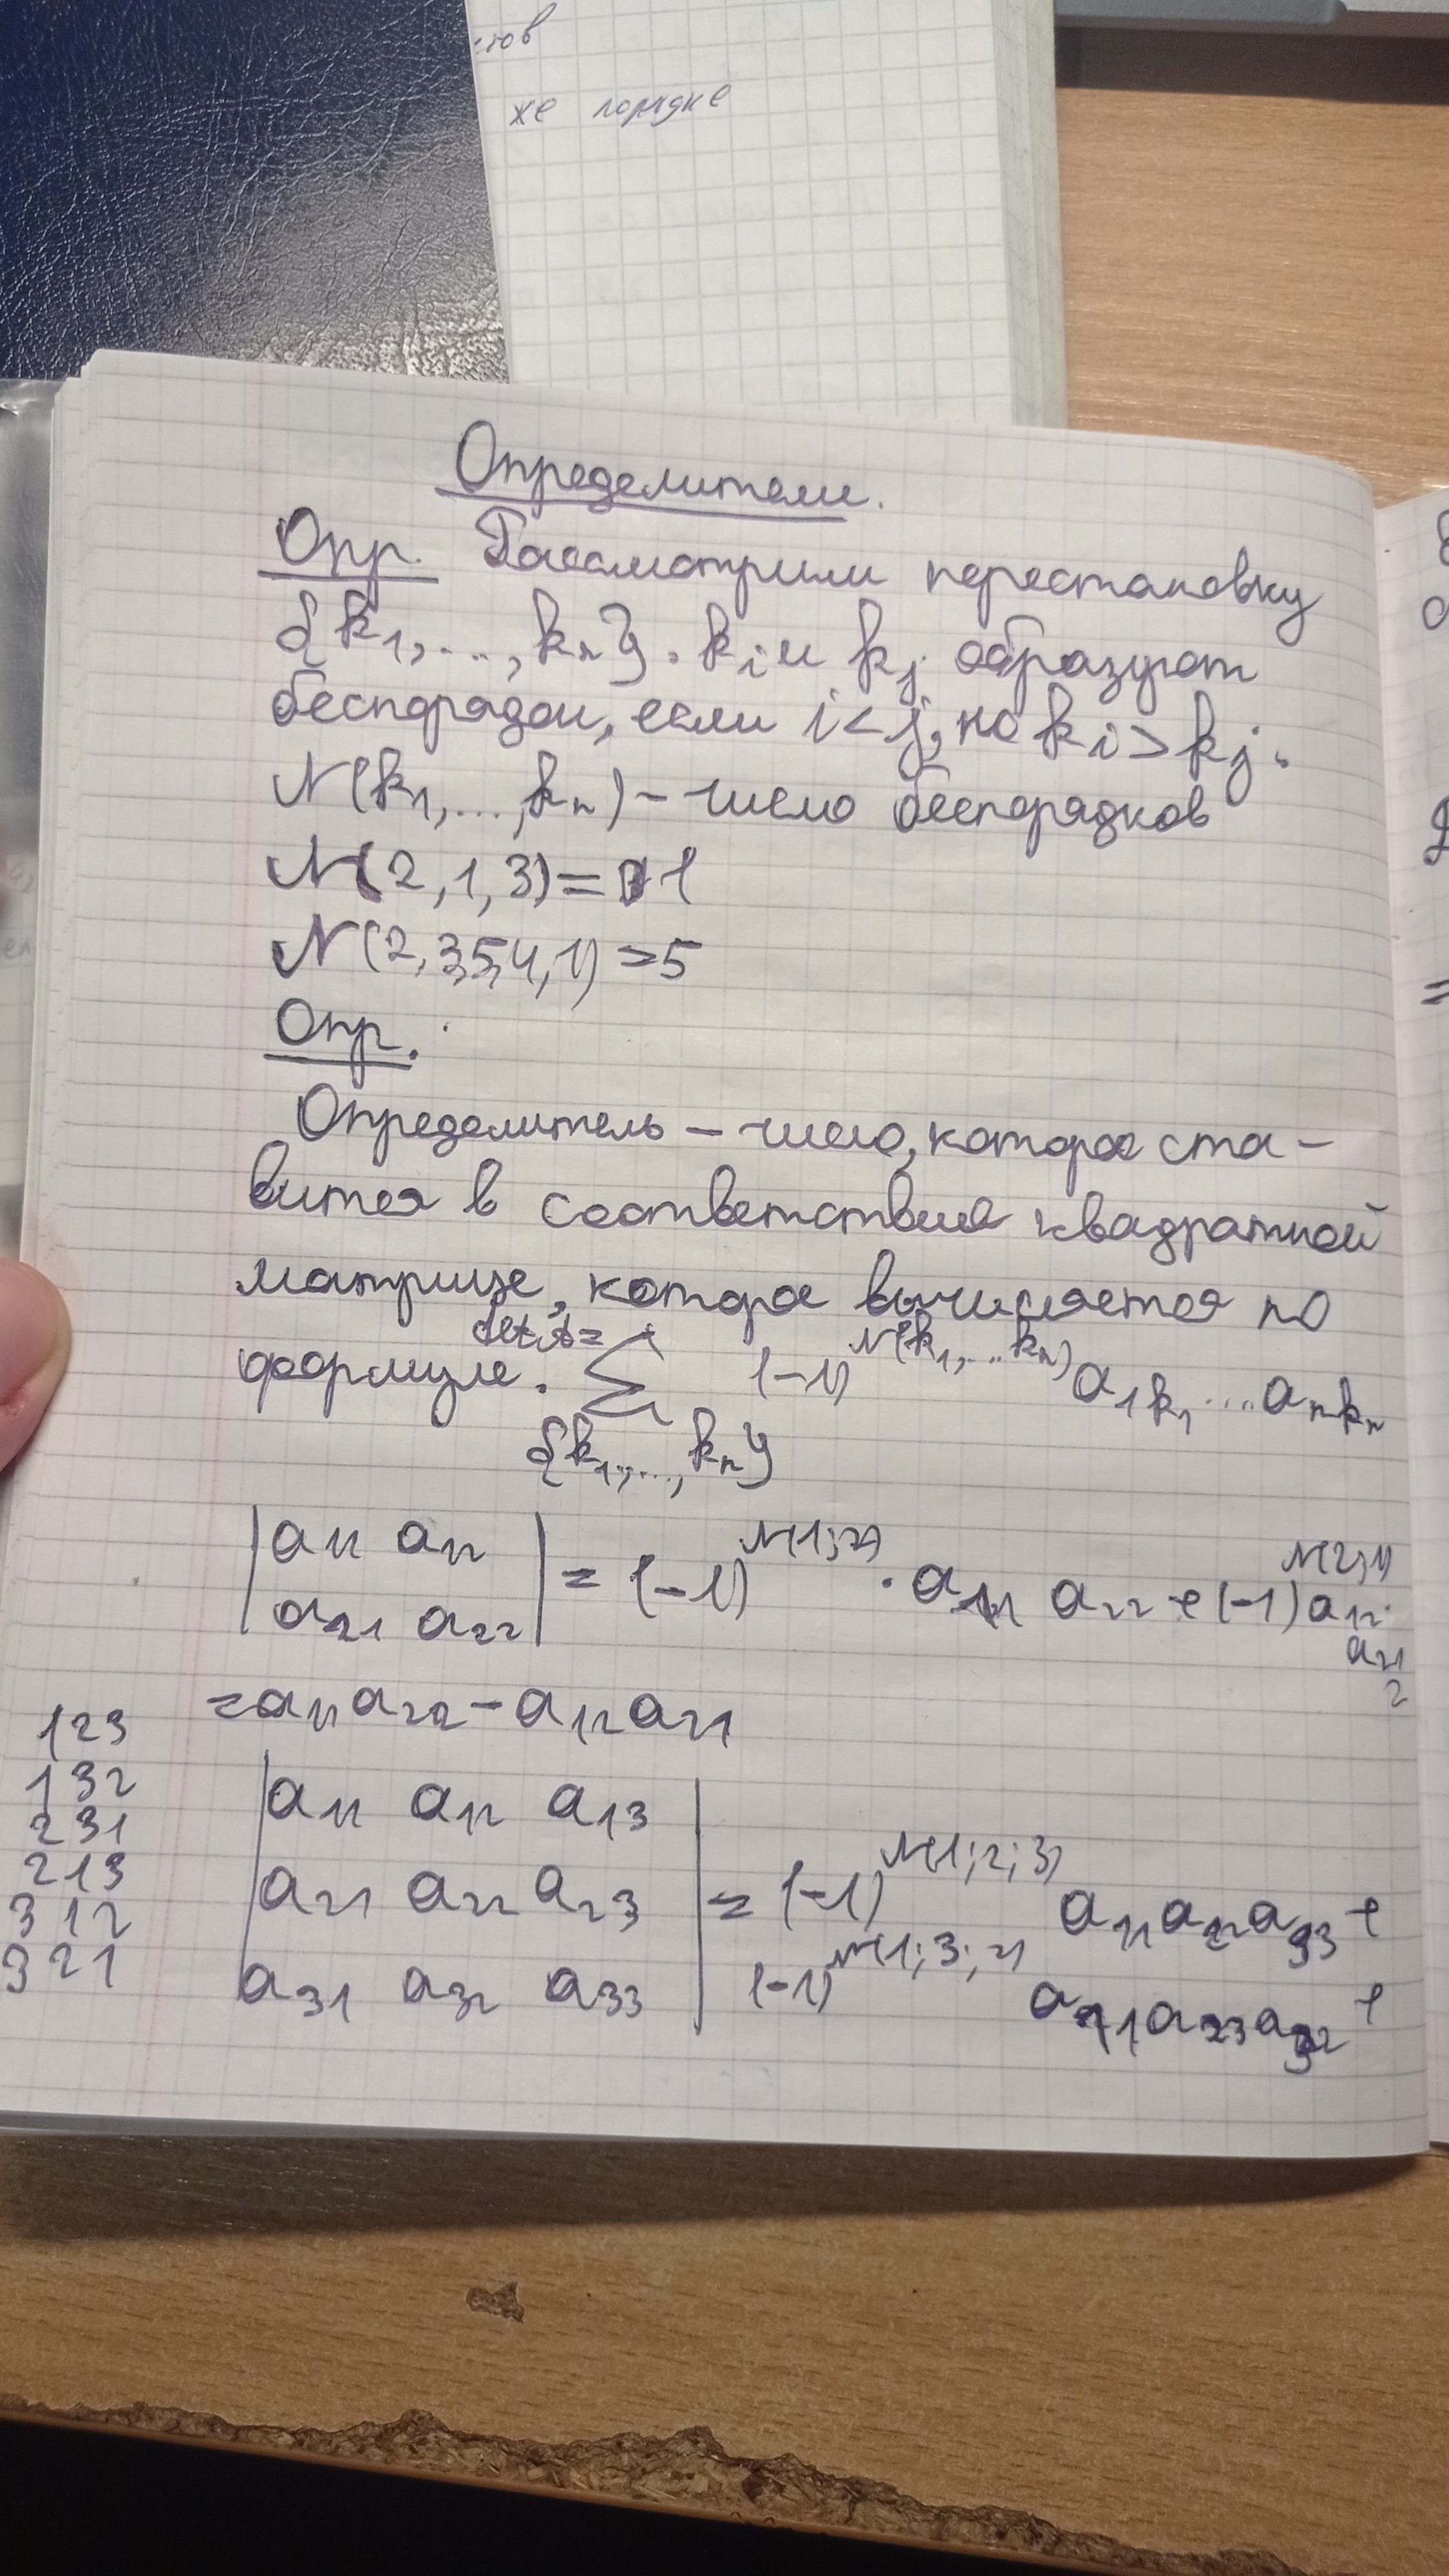 же порядке
Определители.
Опр. Рассмотрим перестановку
{k₁,...,kₙ}. kᵢ и kⱼ образуют
беспорядок, если i<j, но kᵢ>kⱼ.
N(k₁,...,kₙ) – число беспорядков
N(2,1,3)=1
N(2,3,5,4,1)=5
Опр.
Определитель – число, которое ста-
вится в соответствие квадратной
матрице, которое вычисляется по
формуле. det A = ∑ (-1)^N(k₁,...kₙ) a₁k₁....aₙkₙ
{k₁,...,kₙ}
|a₁₁ a₁₂|
|a₂₁ a₂₂| = (-1)^N(1;2) · a₁₁ a₂₂ + (-1)^N(2;1) a₁₂·
a₂₁
=
=a₁₁a₂₂ – a₁₂a₂₁
123
132
231
213
312
321
|a₁₁ a₁₂ a₁₃|
|a₂₁ a₂₂ a₂₃| = (-1)^N(1;2;3) a₁₁a₂₂a₃₃ +
|a₃₁ a₃₂ a₃₃| (-1)^N(1;3;2) a₁₁a₂₃a₃₂ +